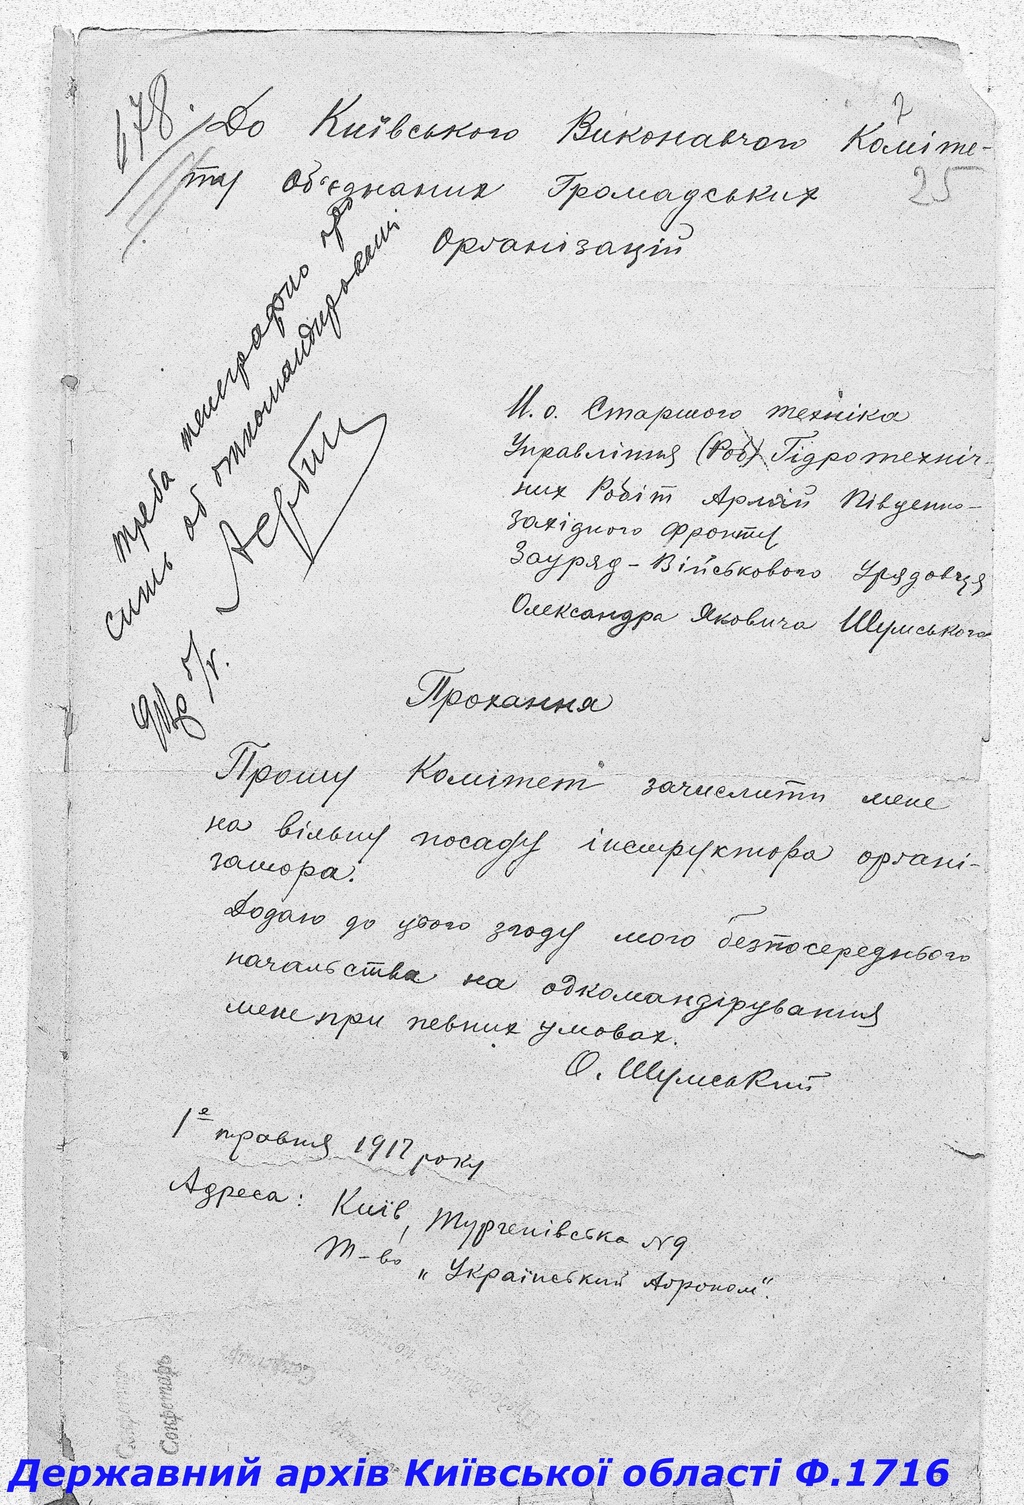 178.
До Київського Виконавчого Коміте-
ту Об'єднаних Громадських
Організацій
25
треба телеграфно про
сить об откомандировані
И. о. Старшого техніка
Управління (Роб) Гідротехніч-
них Робіт Армій Південно-
західного фронту
Зауряд-Військового Урядовця
Олександра Яковича Шумського
Прохання
Прошу Комітет зачислити мене
на вільну посаду інструктора органі-
затора.
Додаю до цього згоду мого безпосереднього
начальства на одкомандірування
мене при певних умовах.
О. Шумський
1е травня 1917 року
Адреса: Київ, Тургенівська №9
Т-во „Український Агроном".
Секретарь
Державний архів Київської області Ф.1716